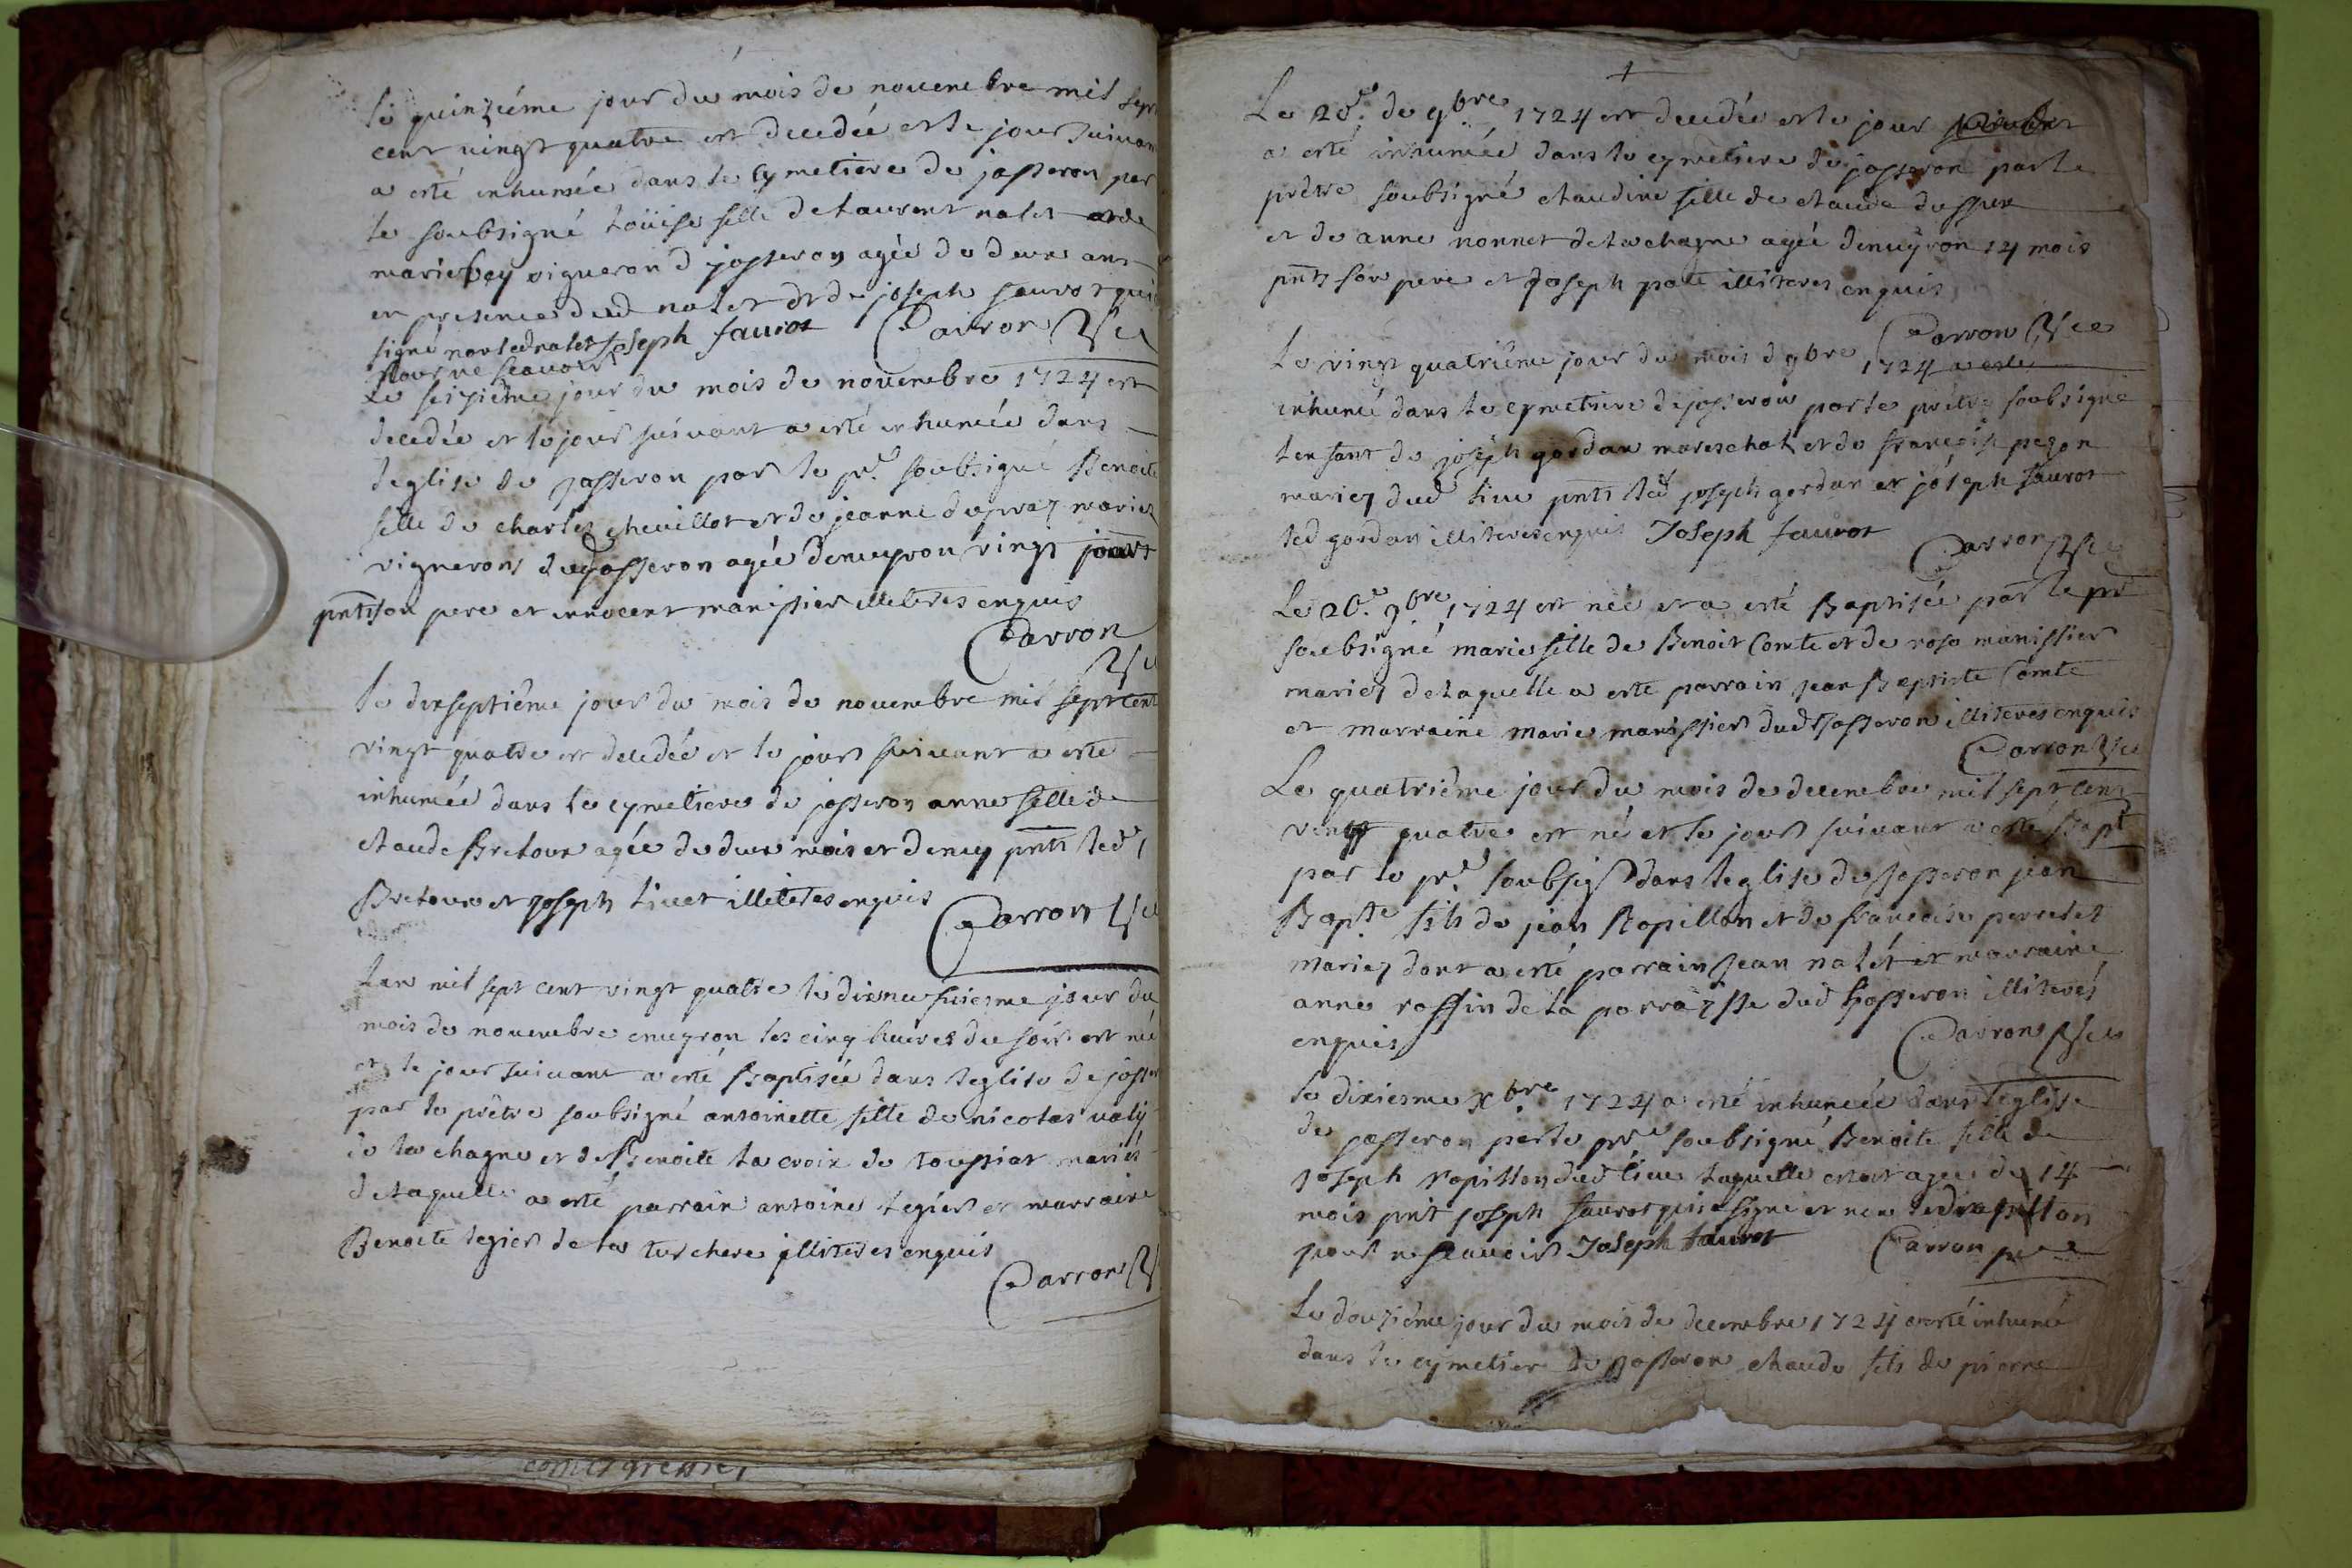 le quinziéme jour du mois de nouembre mil sept
cent vingt quatre est decedée et le jour suiuan
a esté inhumée dans le cymetiere de josseron par
le soubsigné Loüise fille de laurent nalet et de
marie bey vigneron d josseron agée de deux ans
en presence dud nalet et de joseph fauror qui
signé non led nalet Joseph fauror Carron
pour ne scauoir
Le seiziéme jour du mois de nouembre 1724 est
decedée et le jour suiuant a esté inhumée dans
leglise de josseron par le pre soubsigné Benoite
fille de charles cheuillot et de jeanne dupraz mariez
vignerons dud josseron agée denuyron vingt jours
pnts son pere et innocent manissier illiteres enquis
Carron
le dixseptiéme jour du mois de nouembre mil sept cent
vingt quatre est decedée et le jour suiuant a esté
inhumée dans le cymetiere de josseron anne fille de
claude Bretoux agée de deux mois et demy pnts led
Bretoux et joseph liuet illiteres enquis
Carron
Lan mil sept cent vingt quatre le dixneufuiesme jour du
mois de nouembre enuyron les cinq heures du soir est née
et le jour suiuant a esté Baptisée dans leglise de josse
par le prêtre soubsigné antoinette fille de nicolas valy
de la chagne et de Benoite la croix de toussiat mariés
de laquelle a esté parrain antoine legier et marraine
Benoite legier de la turchere illiteres enquis
Carron
comersgrenne,
Le 20e. de 9bre 1724 est decedée et le jour
a esté inhumée dans le cymetiere de josseron par le
prêtre soubsigné claudine fille de claude
et de anne nonnet de la chagne agée denuyron 14 mois
pnts son pere et Joseph pate illiteres enquis
Carron
Le vingt quatriéme jour du mois d 9bre 1724 a esté
inhumé dans le cymetiere de josseron par le prêtre soubsigné
lenfant de joseph gordan mareschal et de françoise pezon
mariez dud lieu pnts led joseph gordan et joseph fauror
led gordan illiteres enquis Joseph fauror
Carron
Le 26e. 9bre 1724 est née et a esté Baptisée par le pre
soubsigné marie fille de Benoit Comte et de rose manissier
mariez de laquelle a esté parrain jean Baptiste Comte
et marraine marie manissier dud Josseron illiteres enquis
Carron
Le quatriéme jour du mois de decembre mil sept cent
vingt quatre est né et le jour suiuant a esté Bapt
par le pre soubsigé dans leglise de josseron jean
Bapte fils de jean Ropillon et de françoise perrodet
mariez dont a esté parrain jean nalet et marraine
anne roffin de la parroysse dud josseron illiterés
enquis
Carron
le dixiesme xbre 1724 a esté inhumée dans leglise
de josseron par le pre soubsigné Benoite fille de
Joseph ropillon dud lieu laquelle estoit agée de 14
mois pnt joseph fauror qui a signé et non led ropillon
pour ne scauoir Joseph fauror Carron pre
Le douziéme jour du mois de decembre 1724 a esté inhumé
dans le cymetier de josseron claude fils de pierre